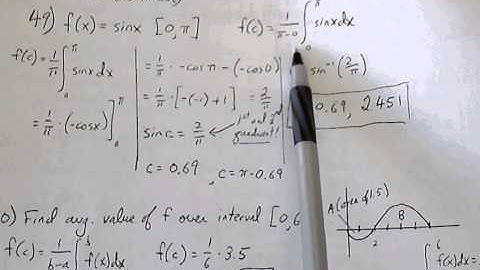 49) f(x) = sinx [0,π]
f(c) = 1/π ∫₀^π sinxdx
= 1/π · (-cosx)]₀^π
= 1/π · -cosπ - (-cos0)
= 1/π · [-(-1)+1] = 2/π
sin c = 2/π
1st and 2nd quadrant!
c = 0.69, c = π-0.69
f(c) = 1/(π-0) ∫₀^π sinxdx
sin⁻¹(2/π)
0.69, 2.451
0) Find avg. value of f over interval [0,6
f(c) = 1/(b-a) ∫ f(x)dx
f(c) = 1/6 · 3.5
A (area of 1.5)
B
2
∫ f(x)dx =